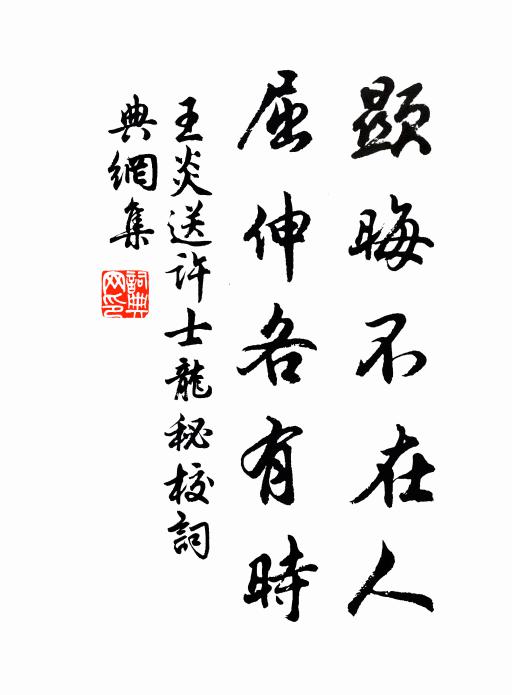 顯晦不在人
屈伸各有時
王炎送許士龍秘校詞
典網集
詞典网印